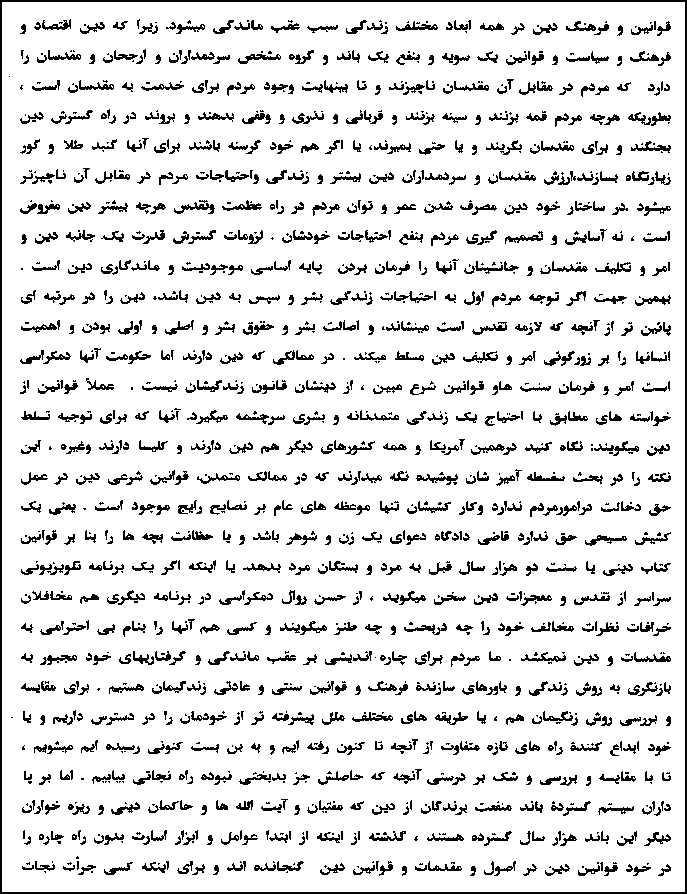 قوانین و فرهنگ دین در همه ابعاد مختلف زندگی سبب عقب ماندگی میشود. زیرا که دین اقتصاد و
فرهنگ و سیاست و قوانین یک سویه و بنفع یک باند و گروه مشخص سردمداران و ارجحان و مقدسان را
دارد که مردم در مقابل آن مقدسان ناچیزند و تا بینهایت وجود مردم برای خدمت به مقدسان است ،
بطوریکه هرچه مردم قمه بزنند و سینه بزنند و قربانی و نذری و وقفی بدهند و بروند در راه گسترش دین
بجنگند و برای مقدسان بگریند و یا حتی بمیرند، یا اگر هم خود گرسنه باشند برای آنها گنبد طلا و گور
زیارتگاه بسازند،ارزش مقدسان و سردمداران دین بیشتر و زندگی واحتیاجات مردم در مقابل آن ناچیزتر
میشود .در ساختار خود دین مصرف شدن عمر و توان مردم در راه عظمت وتقدس هرچه بیشتر دین مفروض
است ، نه آسایش و تصمیم گیری مردم بنفع احتیاجات خودشان . لزومات گسترش قدرت یک جانبه دین و
امر و تکلیف مقدسان و جانشینان آنها را فرمان بردن پایه اساسی موجودیت و ماندگاری دین است .
بهمین جهت اگر توجه مردم اول به احتیاجات زندگی بشر و سپس به دین باشد، دین را در مرتبه ای
پائین تر از آنچه که لازمه تقدس است مینشاند، و اصالت بشر و حقوق بشر و اصلی و اولی بودن و اهمیت
انسانها را بر زورگوئی امر و تکلیف دین مسلط میکند . در ممالکی که دین دارند اما حکومت آنها دمکراسی
است امر و فرمان سنت هاو قوانین شرع مبین ، از دینشان قانون زندگیشان نیست . عملاً قوانین از
خواسته های مطابق با احتیاج یک زندگی متمدنانه و بشری سرچشمه میگیرد. آنها که برای توجیه تسلط
دین میگویند: نگاه کنید درهمین آمریکا و همه کشورهای دیگر هم دین دارند و کلیسا دارند وغیره ، این
نکته را در بحث سفسطه آمیز شان پوشیده نگه میدارند که در ممالک متمدن، قوانین شرعی دین در عمل
حق دخالت درامورمردم ندارد وکار کشیشان تنها موعظه های عام بر نصایح رایج موجود است . یعنی یک
کشیش مسیحی حق ندارد قاضی دادگاه دعوای یک زن و شوهر باشد و یا حظانت بچه ها را بنا بر قوانین
کتاب دینی یا سنت دو هزار سال قبل به مرد و بستگان مرد بدهد. یا اینکه اگر یک برنامه تلویزیونی
سراسر از تقدس و معجزات دین سخن میگوید ، از حسن روال دمکراسی در برنامه دیگری هم مخافلان
خرافات نظرات مخالف خود را چه دربحث و چه طنز میگویند و کسی هم آنها را بنام بی احترامی به
مقدسات و دین نمیکشد . ما مردم برای چاره اندیشی بر عقب ماندگی و گرفتاریهای خود مجبور به
بازنگری به روش زندگی و باورهای سازندۀ فرهنگ و قوانین سنتی و عادتی زندگیمان هستیم . برای مقایسه
و بررسی روش زنگیمان هم ، یا طریقه های مختلف ملل پیشرفته تر از خودمان را در دسترس داریم و یا
خود ابداع کنندۀ راه های تازه متفاوت از آنچه تا کنون رفته ایم و به بن بست کنونی رسیده ایم میشویم ،
تا با مقایسه و بررسی و شک بر درستی آنچه که حاصلش جز بدبختی نبوده راه نجاتی بیابیم . اما بر پا
داران سیستم گستردۀ باند منفعت برندگان از دین که مفتیان و آیت الله ها و حاکمان دینی و ریزه خواران
دیگر این باند هزار سال گسترده هستند ، گذشته از اینکه از ابتدا عوامل و ابزار اسارت بدون راه چاره را
در خود قوانین دین در اصول و مقدمات و قوانین دین گنجانده اند و برای اینکه کسی جرأت نجات